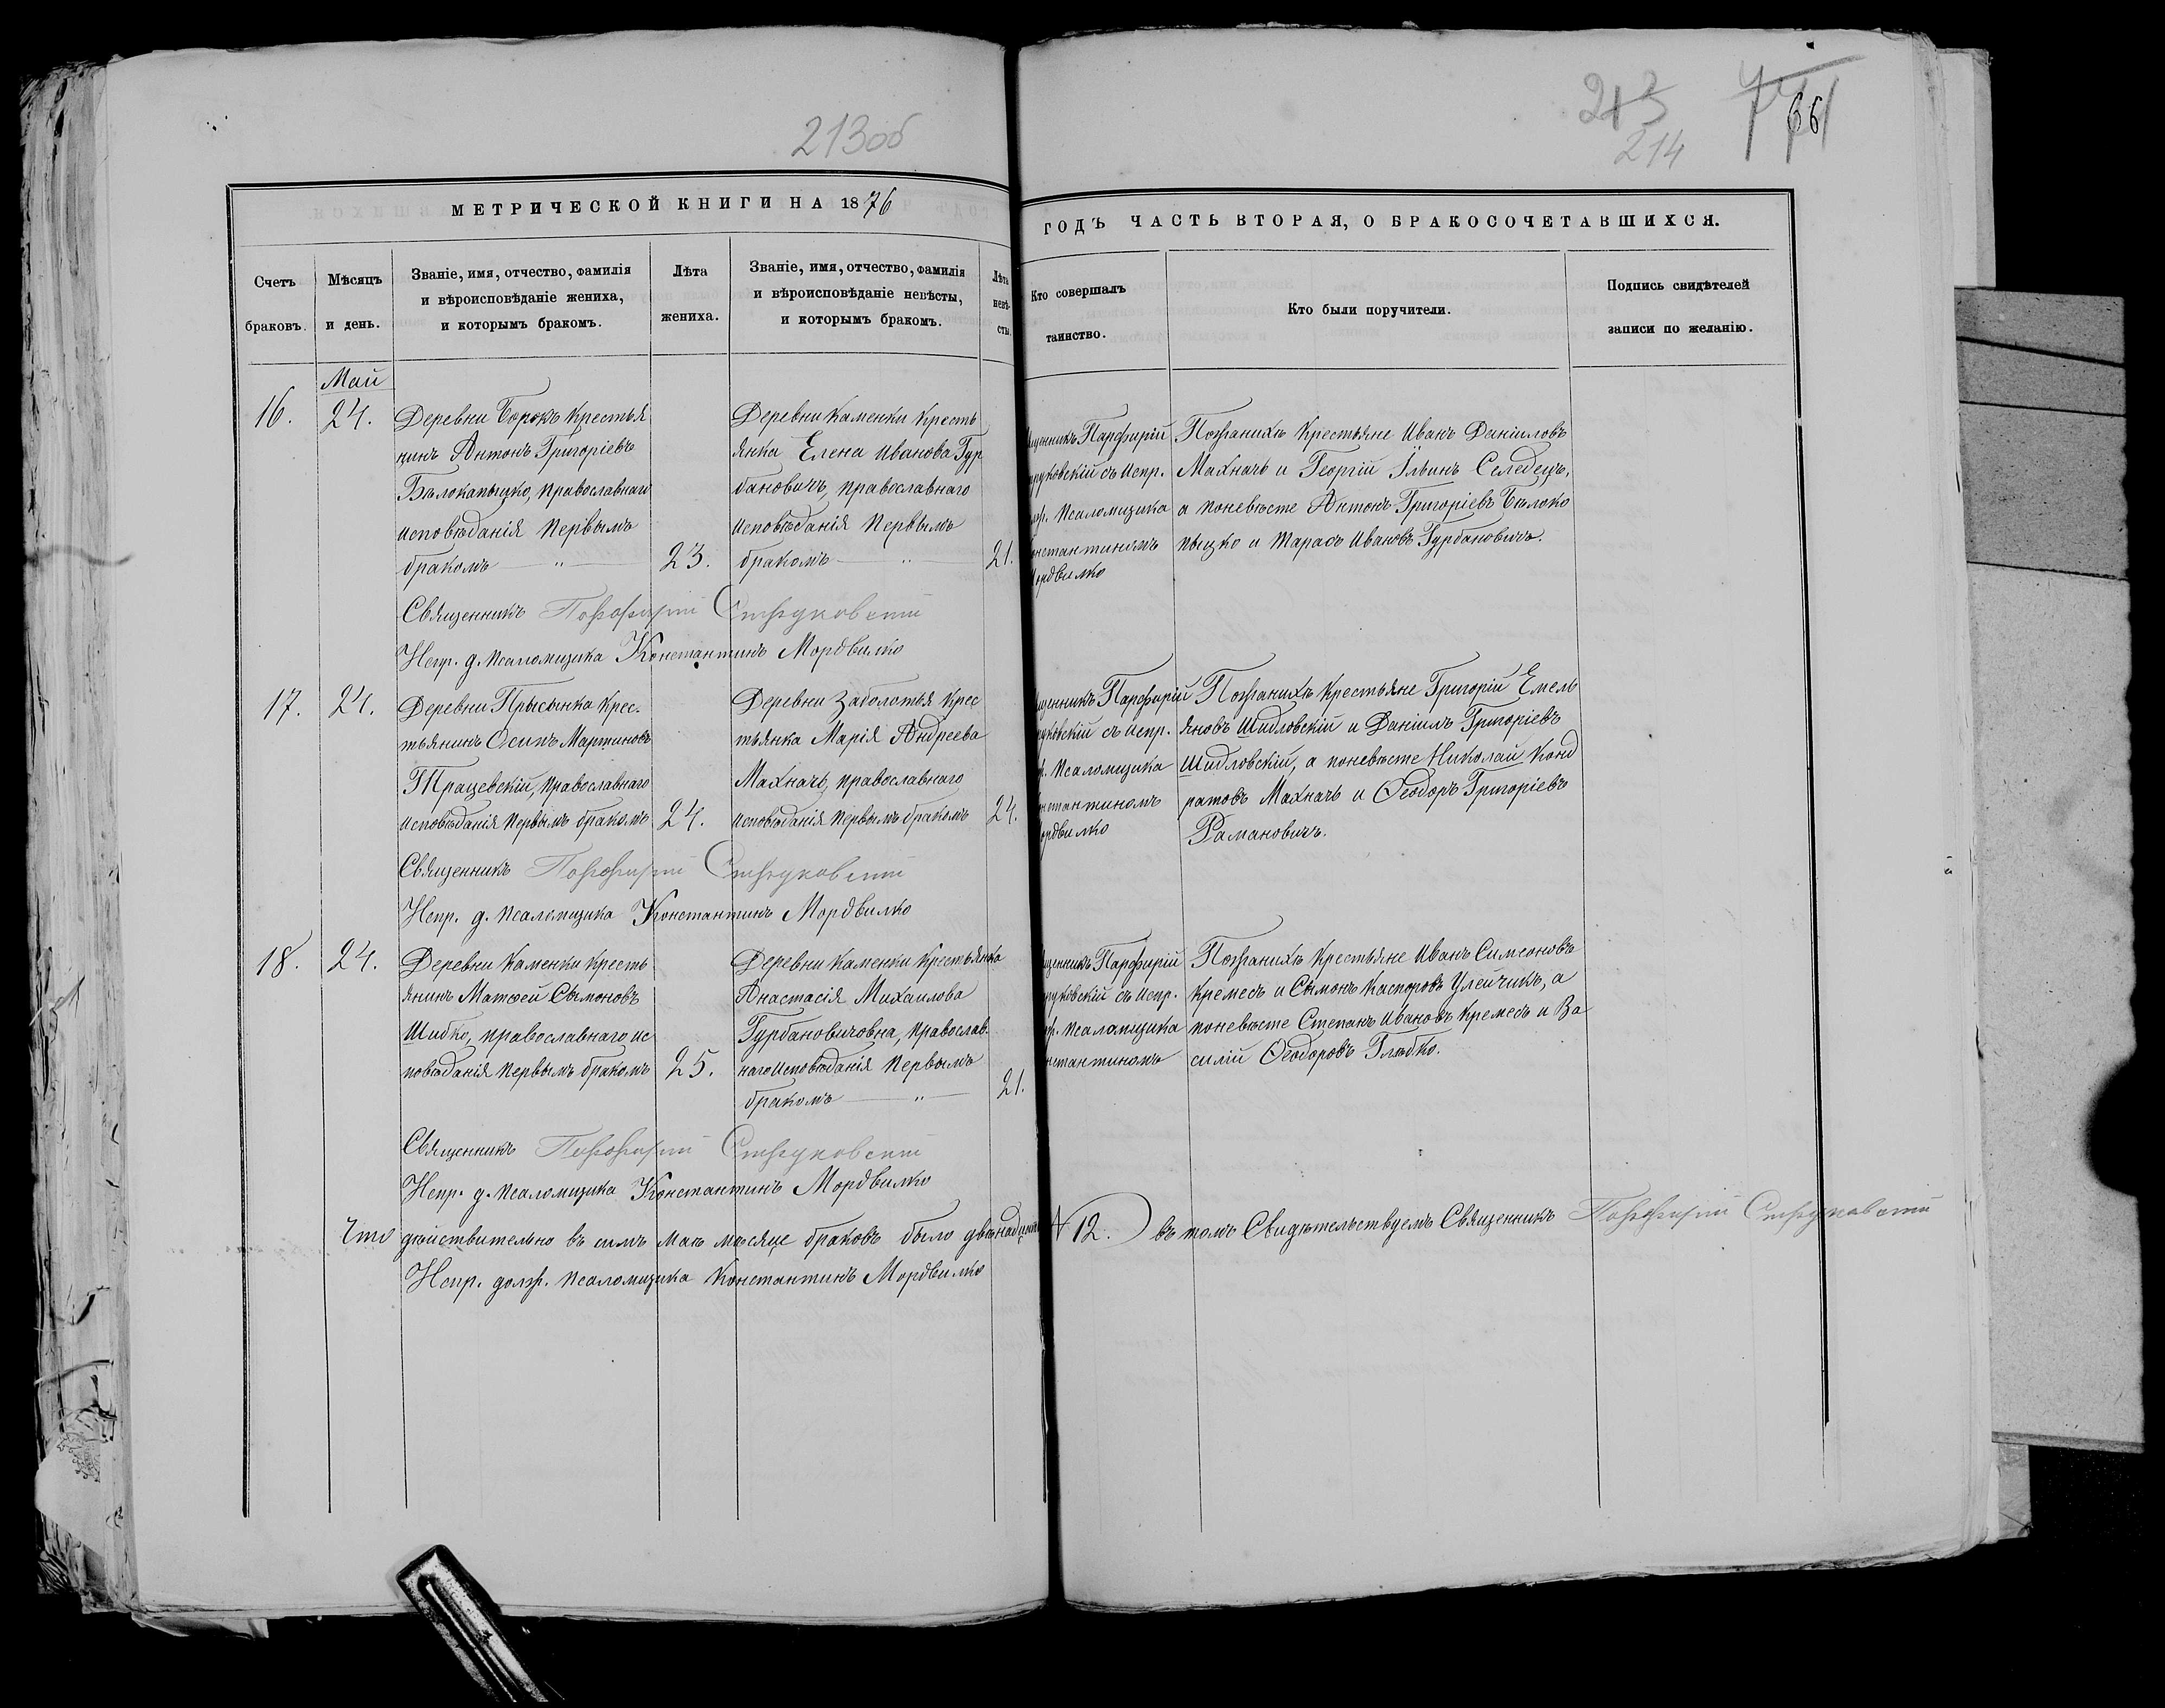 213об
213
214
661
МЕТРИЧЕСКОЙ КНИГИ НА 1876
ГОДЪ ЧАСТЬ ВТОРАЯ, О БРАКОСОЧЕТАВШИХСЯ.
Счетъ
браковъ.
Мѣсяцъ
и день.
Званіе, имя, отчество, фамилія
и вѣроисповѣданіе жениха,
и которымъ бракомъ.
Лѣта
жениха.
Званіе, имя, отчество, фамилія
и вѣроисповѣданіе невѣсты,
и которымъ бракомъ.
Лѣта
невѣ-
сты.
Кто совершалъ
таинство.
Кто были поручители.
Подпись свидѣтелей
записи по желанію.
Май
16.
24.
Деревни Борокъ крестья
нинъ Антонъ Григоріевъ
Бѣлокапыцко, православнаго
исповѣданія первымъ
бракомъ — " —
23.
Деревни Каменки кресть
янка Елена Иванова Гур
бановичъ, православнаго
исповѣданія первымъ
бракомъ — " —
21.
щенникъ Парфирій
руковскій съ испр.
лж. псаломщика
онстантиномъ
ордвилко
Пожанихѣ крестьяне Иванъ Даніиловъ
Махначъ и Георгій Ильинъ Селедецъ,
а поневѣсте Антонъ Григоріевъ Бѣлоко
пыцко и Тарасъ Ивановъ Гурбановичъ.
Священникъ Порфирій Струковскій
Испр. д. псаломщика Константинъ Мордвилко
17.
24.
Деревни Прысынка крес-
тьянинъ Осипъ Мартиновъ
Трацевскій, православнаго
исповѣданія первымъ бракомъ
24.
Деревни Заболотья крес
тьянка Марія Андреева
Махначъ, православнаго
исповѣданія первымъ бракомъ
24.
щенникъ Парфирій
руковскій съ испр.
ж. псаломщика
нстантиномъ
ордвилко
Пожанихѣ крестьяне Григорій Емель
яновъ Шидловскій и Даніилъ Григоріевъ
Шидловскій, а поневѣсте Николай Конд
ратовъ Махначъ и Ѳеодоръ Григоріевъ
Рамановичъ.
Священникъ Порфирій Струковскій
Испр. д. псаломщика Константинъ Мордвилко
18.
24.
Деревни Каменки кресть
янинъ Матѳей Сымоновъ
Шибко, православнаго ис
повѣданія первымъ бракомъ
25.
Деревни Каменки крестьянка
Анастасія Михаилова
Гурбановичовна, православ-
наго исповѣданія первымъ
бракомъ — " —
21.
щенникъ Парфирій
руковскій съ испр.
лж. псаломщика
нстантиномъ
Пожанихѣ крестьяне Иванъ Симеоновъ
Кремесъ и Сымонъ Каспоровъ Улейчикъ, а
поневѣсте Степанъ Ивановъ Кремесъ и Ва
силій Ѳеодоровъ Глѣбко.
Священникъ Порфирій Струковскій
Испр. д. псаломщика Константинъ Мордвилко
Что дѣйствительно въ симъ маѣ мѣсяце браковъ было двѣнадца 12.) въ томъ Свидѣтельствуемъ Священникъ Порфирій Струковскій
Испр. долж. псаломщика Константинъ Мордвилко